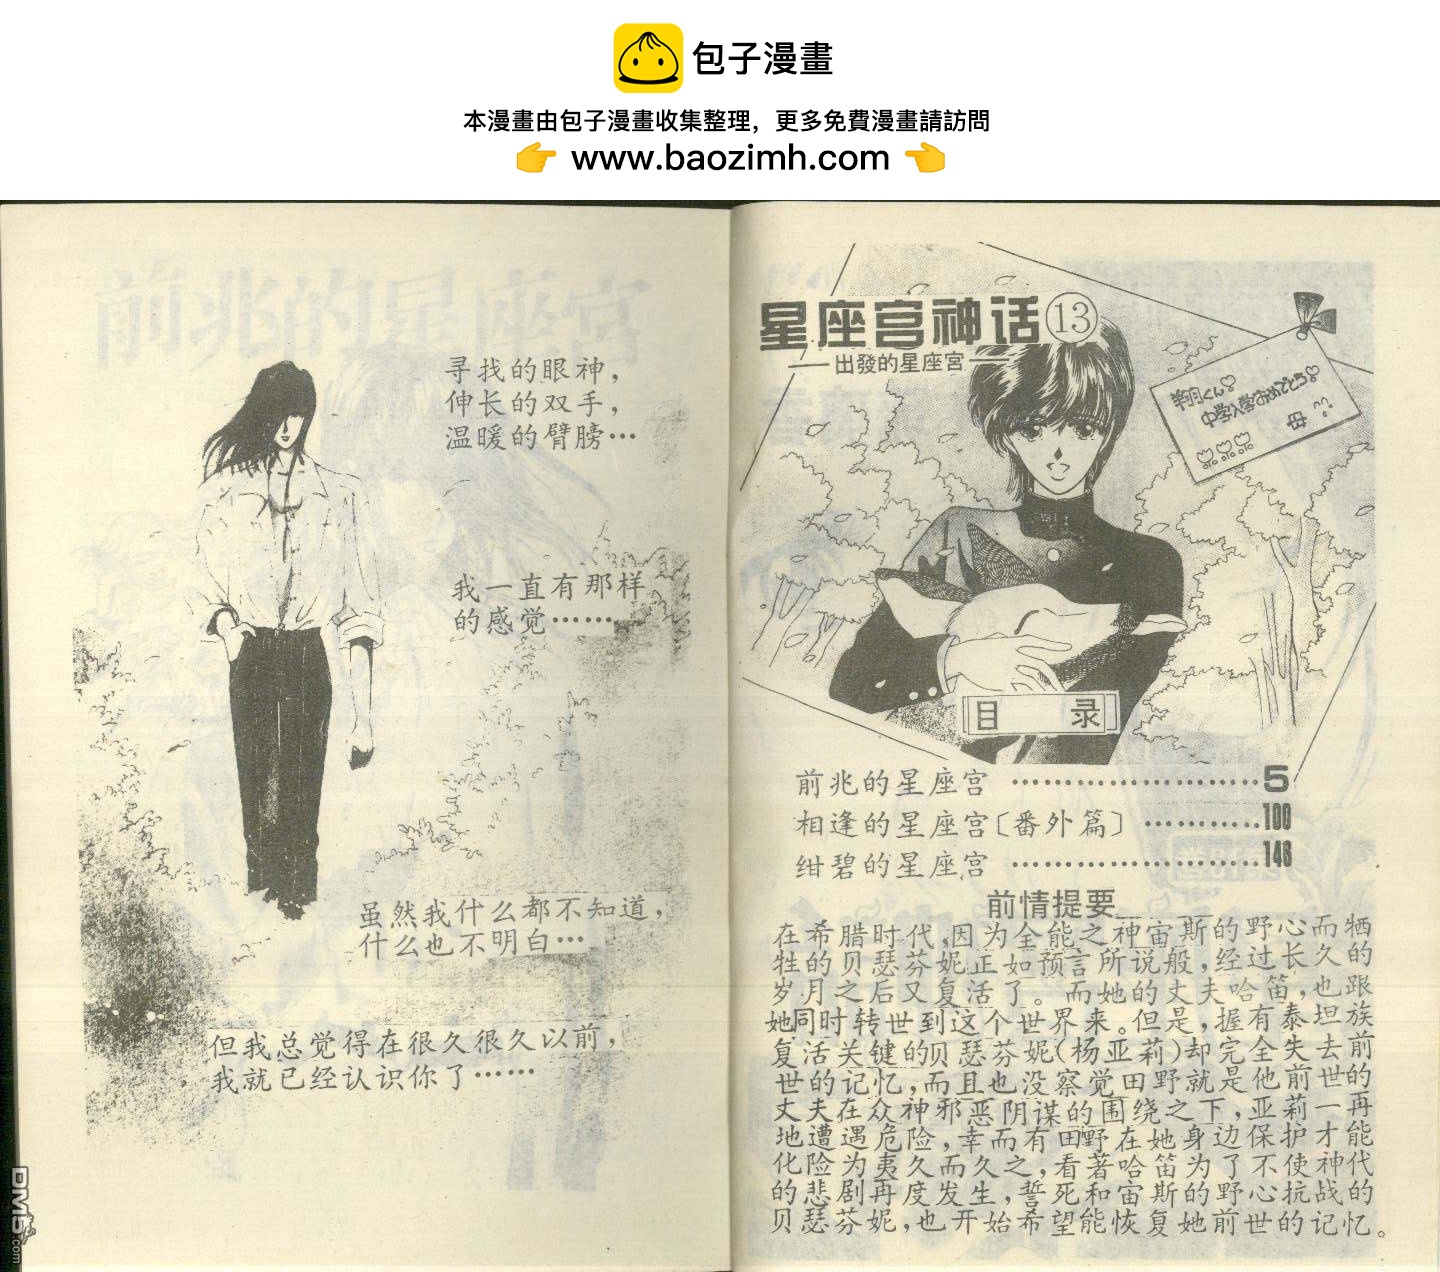 包子漫畫
本漫畫由包子漫畫收集整理，更多免費漫畫請訪問
www.baozimh.com
寻找的眼神，
伸长的双手，
温暖的臂膀…
我一直有那样
的感觉……
虽然我什么都不知道，
什么也不明白…
但我总觉得在很久很久以前，
我就已经认识你了……
星座宫神话⑬
——出發的星座宮——
翔くん♡
中学入学おめでとう♡
母
目 录
前兆的星座宫 ……………………5
相逢的星座宫〔番外篇〕 …………100
绀碧的星座宫 ……………………146
前情提要
在希腊时代，因为全能之神宙斯的野心而牺
牲的贝瑟芬妮正如预言所说般，经过长久的
岁月之后又复活了。而她的丈夫哈笛，也跟
她同时转世到这个世界来。但是，握有泰坦族
复活关键的贝瑟芬妮(杨亚莉)却完全失去前
世的记忆，而且也没察觉田野就是他前世的
丈夫在众神邪恶阴谋的围绕之下，亚莉一再
地遭遇危险，幸而有田野在她身边保护才能
化险为夷久而久之，看著哈笛为了不使神代
的悲剧再度发生，誓死和宙斯的野心抗战的
贝瑟芬妮，也开始希望能恢复她前世的记忆。
DM5.com